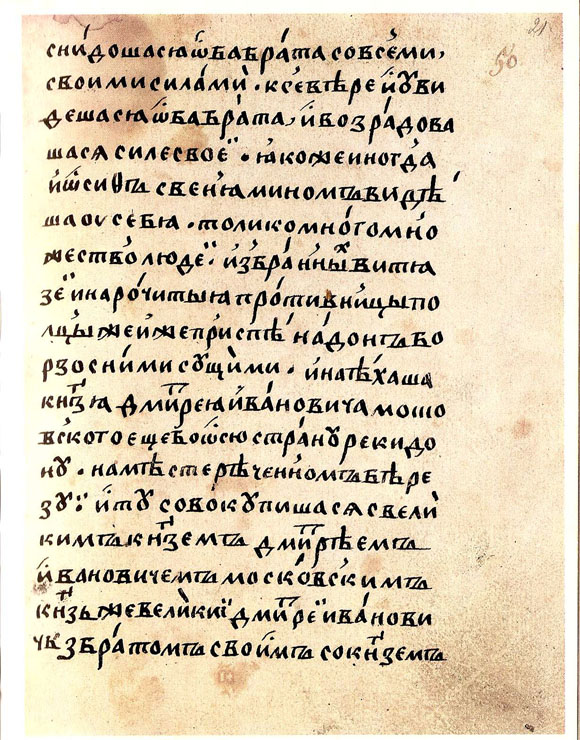 21
50
сни́доша сꙗ ѡ҆ба бра́та со всѣми,
свои ми сила́ми̏ · к севѣре и҆ уви
деша сꙗ ѡ҆ба бра́та, и҆ возра́дова
шася силе свое̏ · ꙗкоже иногда́
и҆ѡ҆сиѳъ с веньꙗмино мъ видѣ́
ша оу себꙗ · толико мно́го мно́
жество люде̏ · и҆збра́нныхъ витꙗ
зе̏ и҆ наро́читыꙗ про́тивницы по
лцы же и҆же приспѣ́ на́ донъ бо
рзо сни́ми су́щими · и҆ наѣ́хаша
кн҃зꙗ дми́треꙗ и҆ва́новича мошо
вскаго еще бо ѡ҆ сю стра́ну реки до
ну · на мѣсте рѣ́ченномъ бѣ́ре
зу҄ : и҆ ту совокупишася с вели́
кимъ кн҃земъ дми́трѣемъ
и҆вановичемъ моско́вскимъ
кн҃зь же вели́ки̏ дми́тре̏ ива́нови
чь з бра́томъ свои҆мъ со кн҃земъ